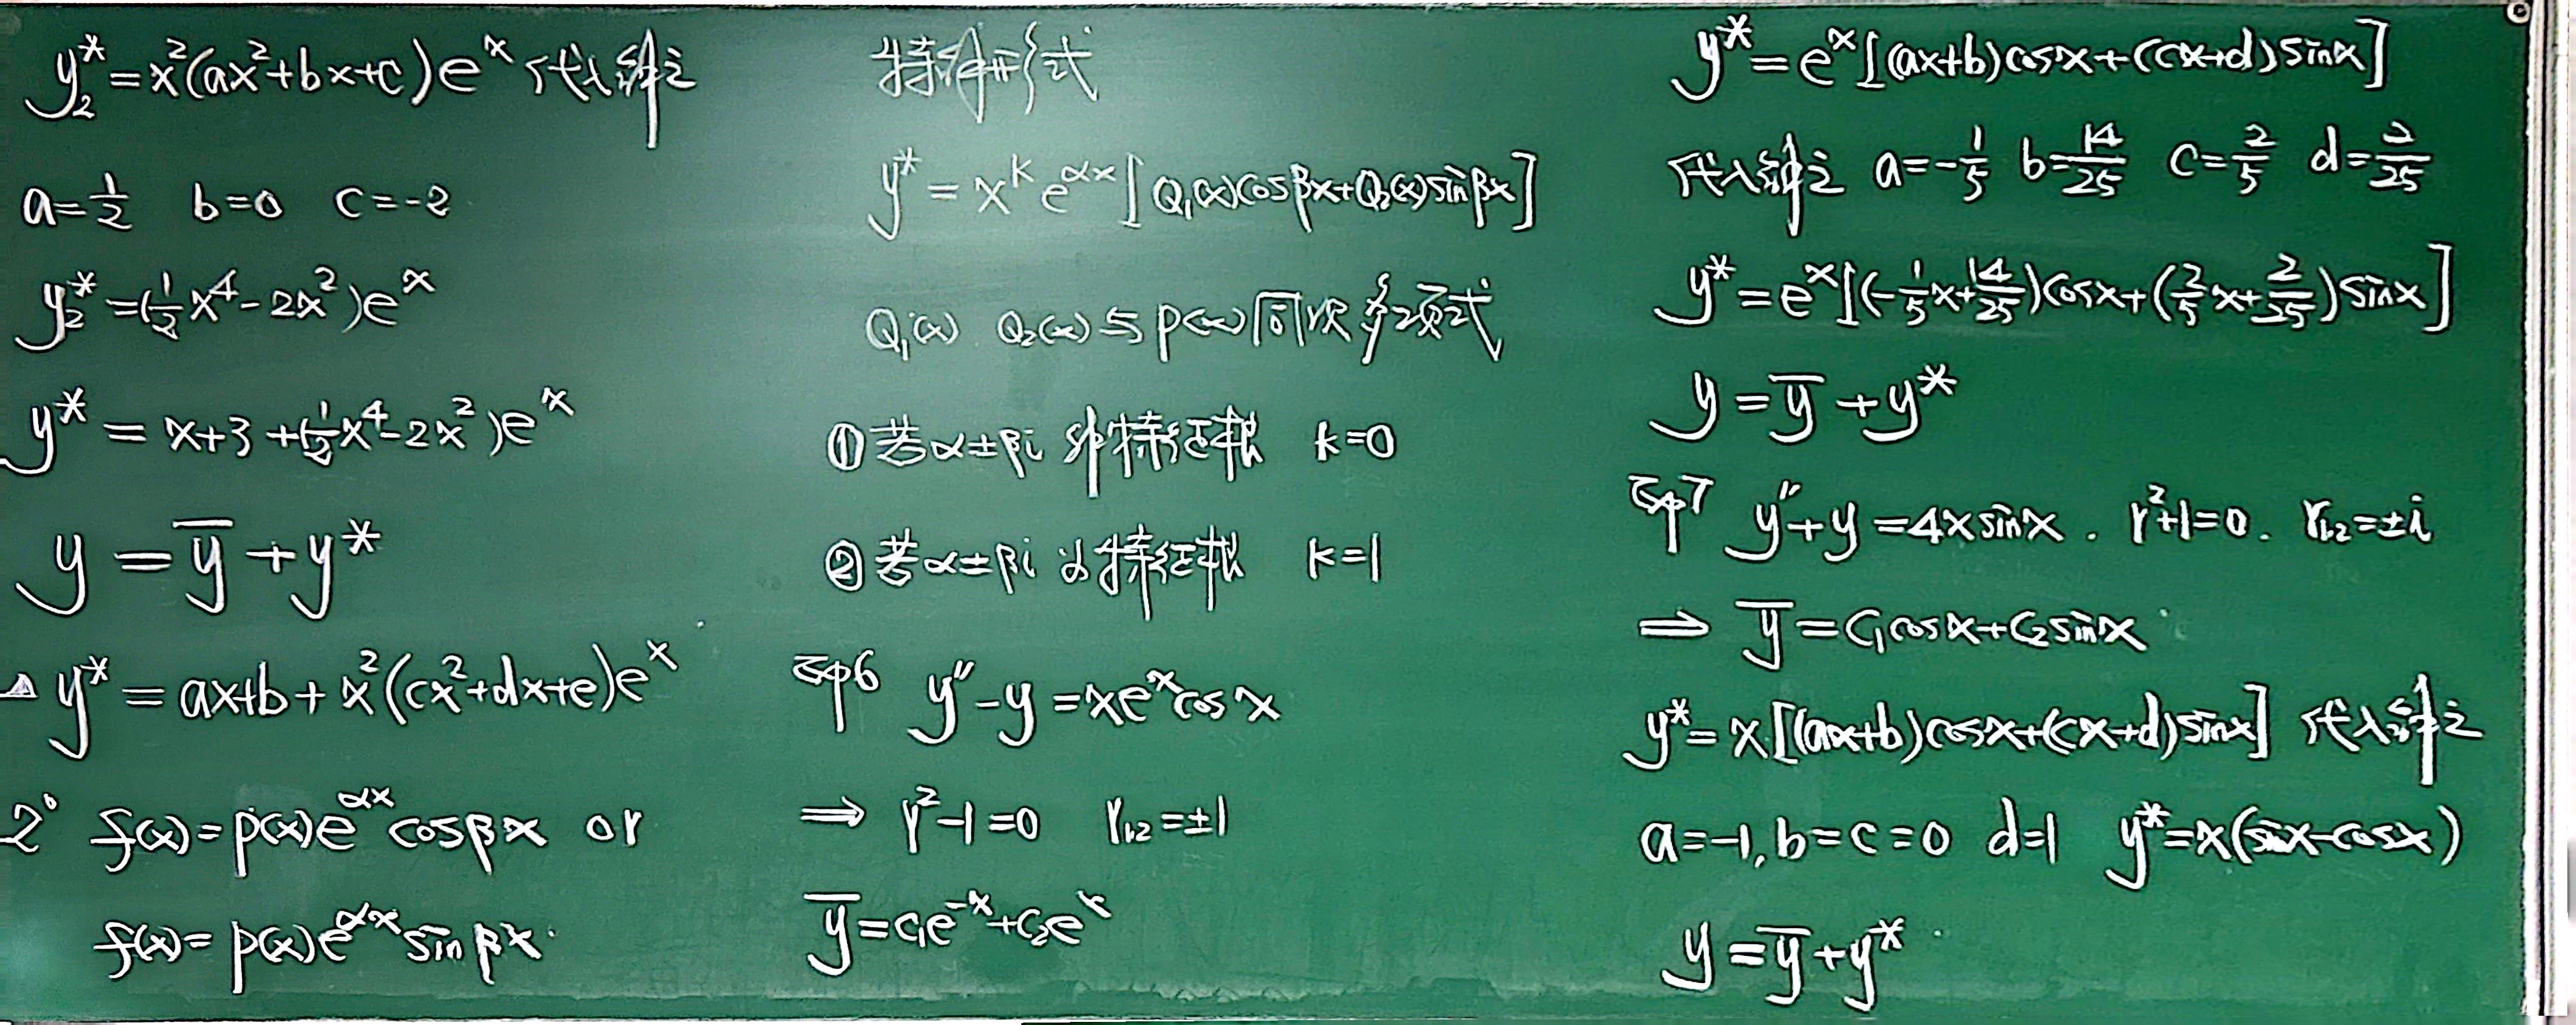 y₂* = x²(ax²+bx+c)eˣ 代入解之
a=1/2 b=0 c=-2
y₂* = (1/2 x⁴ - 2x²)eˣ
y* = x+3+(1/2 x⁴ - 2x²)eˣ
y = ȳ + y*
△ y* = ax+b+x²(cx²+dx+e)eˣ
2° f(x) = p(x)e^{αx} cosβx or
f(x) = p(x)e^{αx} sinβx.
特解形式
y* = x^k e^{αx} [Q₁(x)cosβx+Q₂(x)sinβx]
Q₁(x) Q₂(x) 与 p(x) 同次多项式
① 若 α±βi 非特征根 k=0
② 若 α±βi 为特征根 k=1
Eg6 y″-y = xeˣcosx
⇒ r²-1=0 r₁,₂=±1
ȳ = c₁e⁻ˣ+c₂eˣ
y* = eˣ[(ax+b)cosx+(cx+d)sinx]
代入解之 a=-1/5 b=14/25 c=2/5 d=2/25
y* = eˣ[(-1/5 x+14/25)cosx+(2/5 x+2/25)sinx]
y = ȳ + y*
Eg7 y″+y = 4xsinx. r²+1=0. r₁,₂=±i
⇒ ȳ = C₁cosx+C₂sinx
y* = x[(ax+b)cosx+(cx+d)sinx] 代入解之
a=-1, b=c=0 d=1 y*=x(sinx-cosx)
y = ȳ + y*